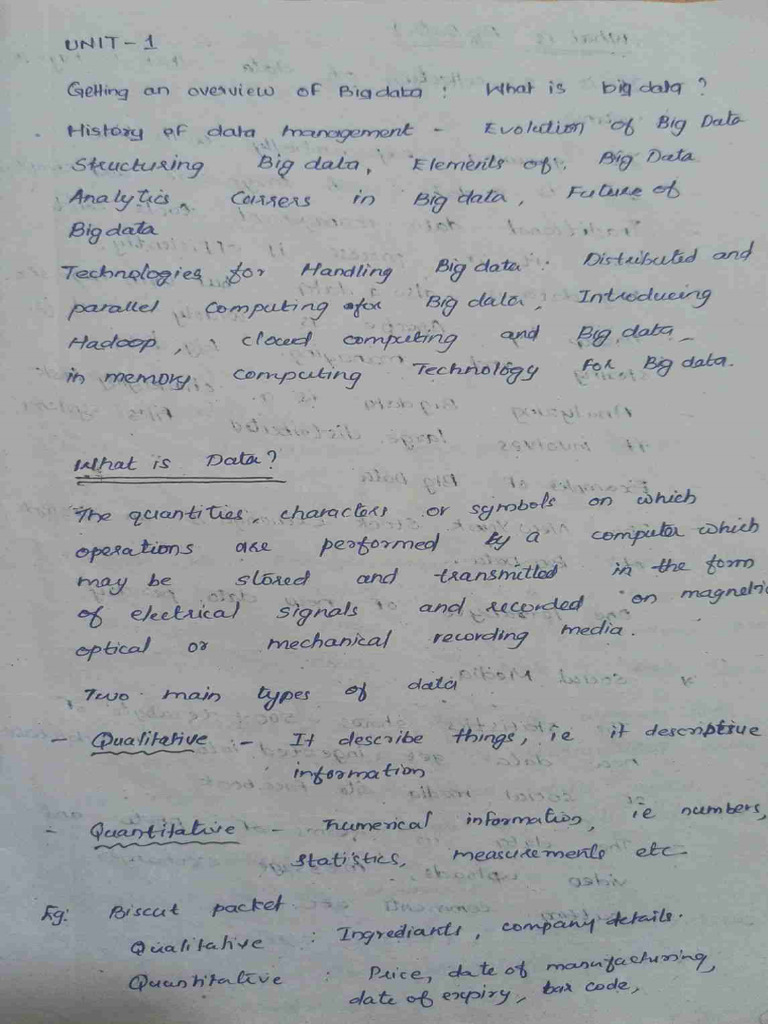 UNIT - 1
Getting an overview of Big data : What is big data ?
History of data management - Evolution of Big Data
Structuring Big data, Elements of Big Data
Analytics, Carrers in Big data, Future of
Big data
Technologies for Handling Big data : Distributed and
parallel Computing for Big data, Introducing
Hadoop, cloud computing and Big data
in memory computing Technology for Big data.
What is Data?
The quantities, characters or symbols on which
operations are performed by a computer which
may be stored and transmitted in the form
of electrical signals and recorded on magnetic
optical or mechanical recording media.
Two main types of data
- Qualitative - It describe things, ie it descriptive
information
- Quantitative - Numerical information, ie numbers,
statistics, measurements etc
Eg: Biscut packet
Qualitative : Ingrediants, company details.
Quantitative : Price, date of manufacturing,
date of expiry, bar code,